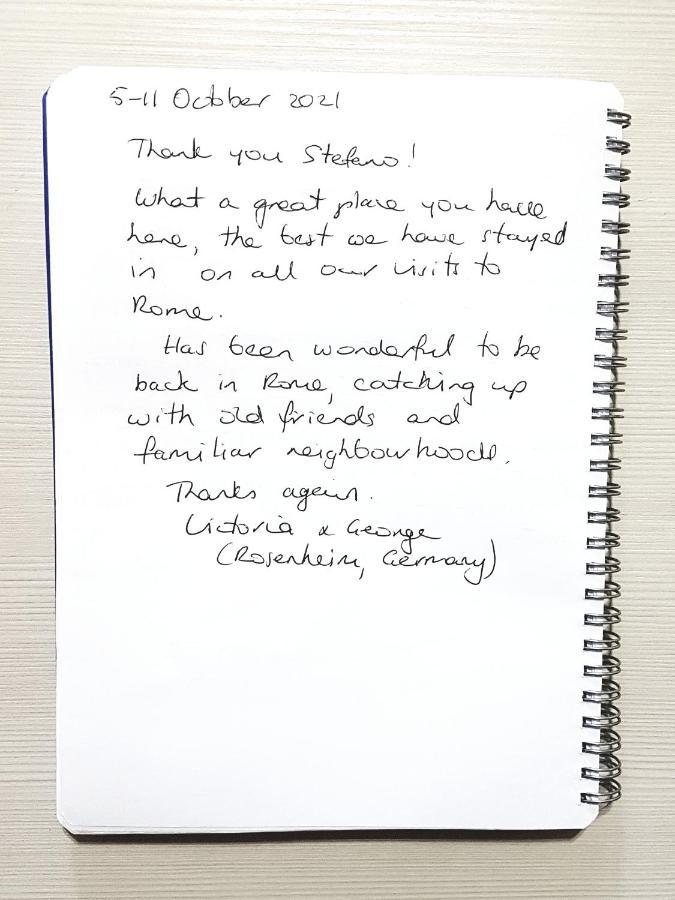 5-11 October 2021
Thank you Stefano!
What a great place you have
here, the best we have stayed
in on all our visits to
Rome.
Has been wonderful to be
back in Rome, catching up
with old friends and
familiar neighbourhoods.
Thanks again.
Victoria & George
(Rosenheim, Germany)